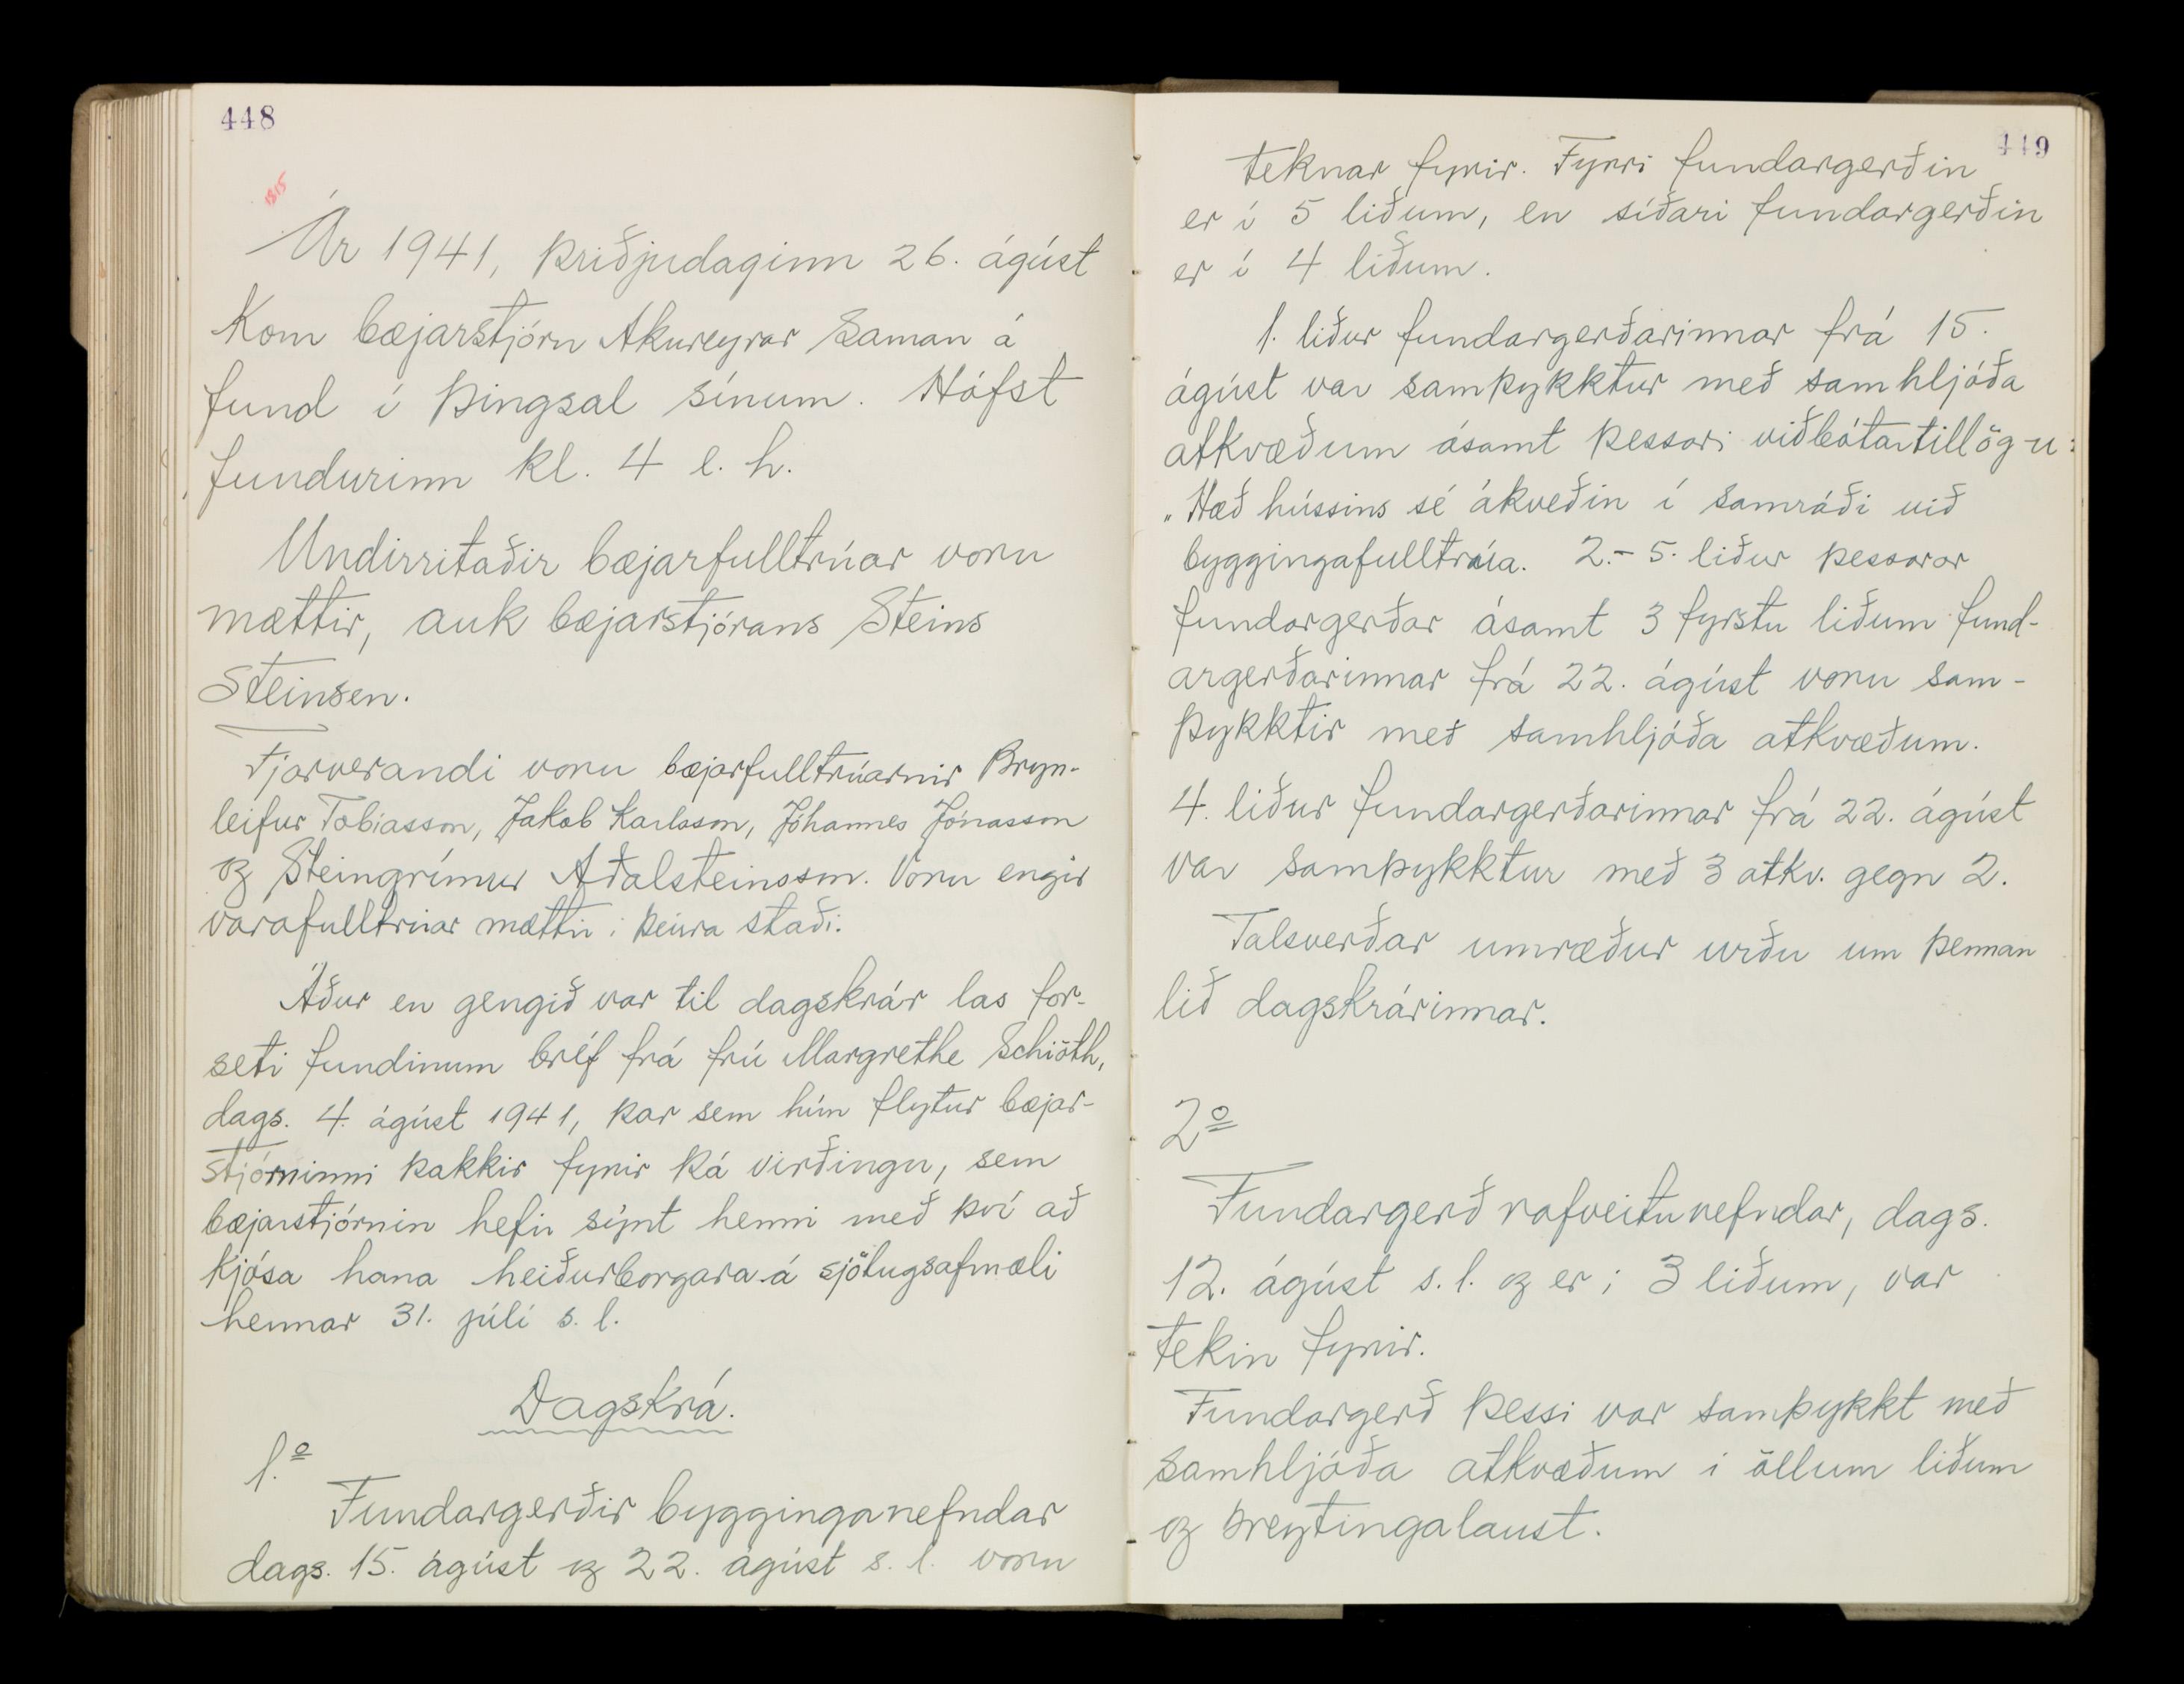 448
1815
Ár 1941, þriðjudaginn 26. ágúst
kom bæjarstjórn Akureyrar saman á
fund í þingsal sínum. Hófst
fundurinn kl. 4 e. h.
Undirritaðir bæjarfulltrúar voru
mættir, auk bæjarstjórans Steins
Steinsen.
Fjarverandi voru bæjarfulltrúarnir Bryn-
leifur Tobiasson, Jakob Karlsson, Jóhannes Jónasson
og Steingrímur Aðalsteinsson. Voru engir
varafulltrúar mættir í þeirra stað.
Áður en gengið var til dagskrár las for-
seti fundinum bréf frá frú Margrethe Schiöth,
dags. 4. ágúst 1941, þar sem hún flytur bæjar-
stjórninni þakkir fyrir þá virðingu, sem
bæjarstjórnin hefir sýnt henni með því að
kjósa hana heiðurborgara á sjötugsafmæli
hennar 31. júlí s. l.
Dagskrá.
1.º
Fundargerðir bygginganefndar
dags. 15. ágúst og 22. ágúst s. l. voru
449
teknar fyrir. Fyrri fundargerðin
er í 5 liðum, en síðari fundargerðin
er í 4 liðum.
1. liður fundargerðarinnar frá 15.
ágúst var samþykktur með samhljóða
atkvæðum ásamt þessari viðbótartillögu:
„Hæð hússins sé ákveðin í samráði við
byggingafulltrúa. 2.-5. liður þessarar
fundargerðar ásamt 3 fyrstu liðum fund-
argerðarinnar frá 22. ágúst voru sam-
þykktir með samhljóða atkvæðum.
4. liður fundargerðarinnar frá 22. ágúst
var samþykktur með 3 atkv. gegn 2.
Talsverðar umræður urðu um þennan
lið dagskrárinnar.
2º
Fundargerð rafveitunefndar, dags.
12. ágúst s. l. og er í 3 liðum, var
tekin fyrir.
Fundargerð þessi var samþykkt með
samhljóða atkvæðum í öllum liðum
og breytingalaust.